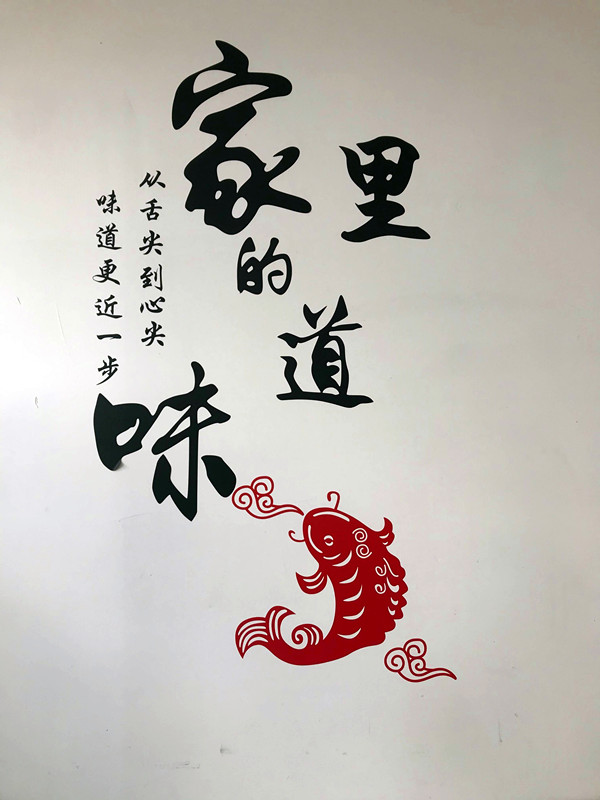 家里的道味
从舌尖到心尖
味道更近一步